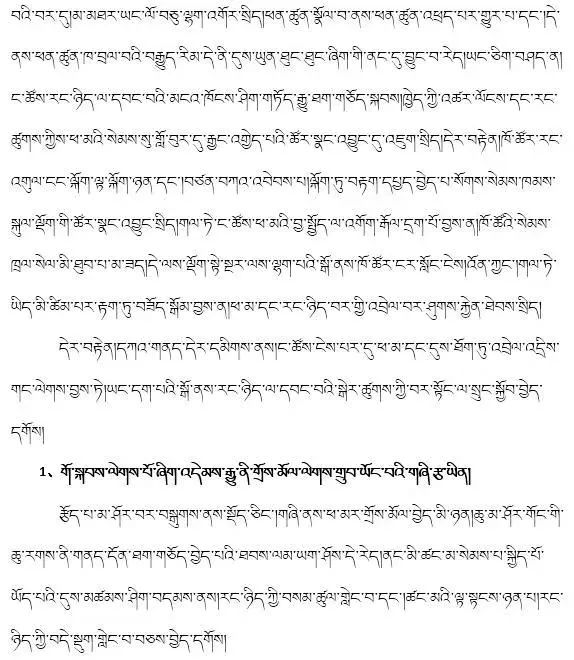 བའི་བར་དུ།མ་མཐར་ཡང་ལོ་བཅུ་ལྷག་འགོར་སྲིད།ཕན་ཚུན་སྡོལ་བ་ནས་ཕན་ཚུན་འཕྲད་པར་གྱུར་པ་དང་།དེ་
ནས་ཕན་ཚུན་ཁ་བྲལ་བའི་བརྒྱུད་རིམ་དེ་ནི་དུས་ཡུན་ཐུང་ཐུང་ཞིག་གི་ནང་དུ་བྱུང་བ་རེད།ཡང་ཅིག་བཤད་ན།
ང་ཚོས་རང་ཉིད་ལ་དབང་བའི་མངའ་ཁོངས་ཤིག་གཏོད་རྒྱུ་ཐག་གཅོད་སྐབས།ཁྱེད་ཀྱི་འཚར་ལོངས་དང་རང་
ཚུགས་ཀྱིས་ཕ་མའི་སེམས་སུ་གློ་བུར་དུ་རྒྱང་འགྱེད་པའི་ཚོར་སྣང་འབྱུང་དུ་འཇུག་སྲིད།དེར་བརྟེན།ཁོ་ཚོར་རང་
འགུལ་ངང་ལྐོག་ལྟ་ལྐོག་ཉན་དང་།བཙན་བཀའ་འབེབས་པ།ལྐོག་ཏུ་བརྟག་དཔྱད་བྱེད་པ་སོགས་སེམས་ཁམས་
སྐུལ་ལྡོག་གི་ཚོར་སྣང་འབྱུང་སྲིད།གལ་ཏེ་ང་ཚོས་ཕ་མའི་བྱ་སྤྱོད་ལ་འགོག་རྒོལ་དྲག་པོ་བྱས་ན།ཁོ་ཚོའི་སེམས་
ཁྲལ་སེལ་མི་ཐུབ་པ་མ་ཟད།དེ་ལས་ལྡོག་སྟེ་སྔར་ལས་ལྷག་པའི་སྒོ་ནས་ཁོ་ཚོར་ངར་སློང་ངེས།འོན་ཀྱང་།གལ་ཏེ་
ཡིད་མི་ཚིམ་པར་རྟག་ཏུ་བཟོད་སྒོམ་བྱས་ན།ཕ་མ་དང་རང་ཉིད་བར་གྱི་འབྲེལ་བར་ཤུགས་རྐྱེན་ཐེབས་སྲིད།
དེར་བརྟེན།དཀའ་གནད་དེར་དམིགས་ནས།ང་ཚོས་ངེས་པར་དུ་ཕ་མ་དང་དུས་ཐོག་ཏུ་འབྲེལ་འདྲིས་
གང་ལེགས་བྱས་ཏེ།ཡང་དག་པའི་སྒོ་ནས་རང་ཉིད་ལ་དབང་བའི་སྒེར་ཚུགས་ཀྱི་བར་སྟོང་ལ་སྲུང་སྐྱོབ་བྱེད་
དགོས།
1、གོ་སྐབས་ལེགས་པོ་ཞིག་འདེམས་རྒྱུ་ནི་གྲོས་མོལ་ལེགས་གྲུབ་ཡོང་བའི་གཞི་རྩ་ཡིན།
རྩོད་པ་མ་ཤོར་བར་བསྒུགས་ནས་སྡོད་ཅིང་།གཞི་ནས་ཕ་མར་གྲོས་མོལ་བྱེད་མི་ཉན།ཆུ་མ་ཤོར་གོང་གི་
ཆུ་རགས་ནི་གནད་དོན་ཐག་གཅོད་བྱེད་པའི་ཐབས་ལམ་ཡག་ཤོས་དེ་རེད།ནང་མི་ཚང་མ་སེམས་པ་སྐྱིད་པོ་
ཡོད་པའི་དུས་མཚམས་ཤིག་བདམས་ནས།རང་ཉིད་ཀྱི་བསམ་ཚུལ་གླེང་བ་དང་།ཚང་མའི་ལྟ་སྟངས་ཉན་པ།རང་
ཉིད་ཀྱི་བདེ་སྡུག་གླེང་བ་བཅས་བྱེད་དགོས།